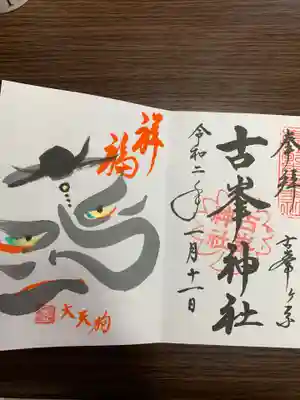 奉拝
古峯ヶ原
古峯神社
令和二年一月十一日
祥
福
大天狗